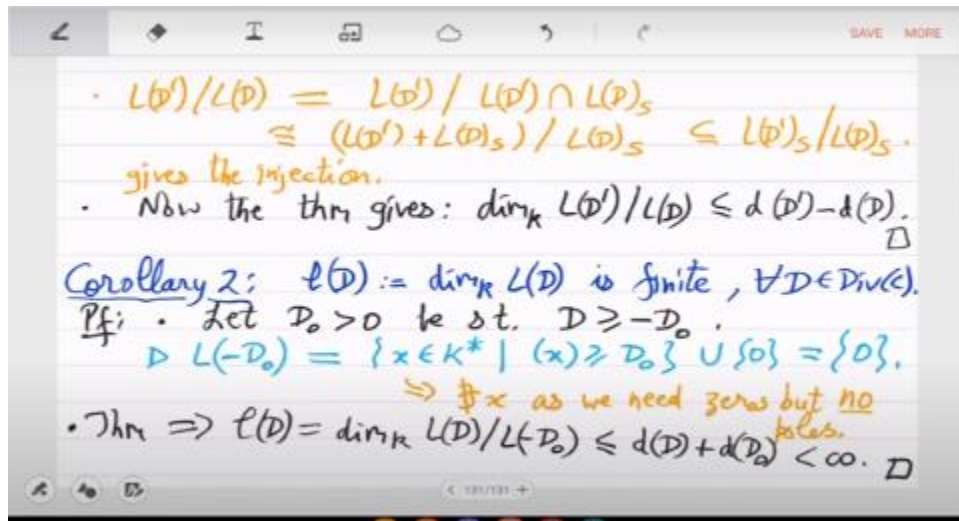 SAVE MORE
· L(D')/L(D) = L(D') / L(D') ∩ L(D)_S
≅ (L(D') + L(D)_S) / L(D)_S ≤ L(D')_S / L(D)_S.
gives the injection.
· Now the thm gives: dim_k L(D')/L(D) ≤ d(D')-d(D).
□
Corollary 2: ℓ(D) := dim_k L(D) is finite, ∀D∈Div(C).
Pf: · Let D₀>0 be st. D ≥ -D₀.
▷ L(-D₀) = {x∈K* | (x) ≥ D₀} ∪ {0} = {0}.
⇒ ∄x as we need zeros but no poles.
· Thm ⇒ ℓ(D) = dim_k L(D)/L(-D₀) ≤ d(D)+d(D₀) < ∞. □
131/131